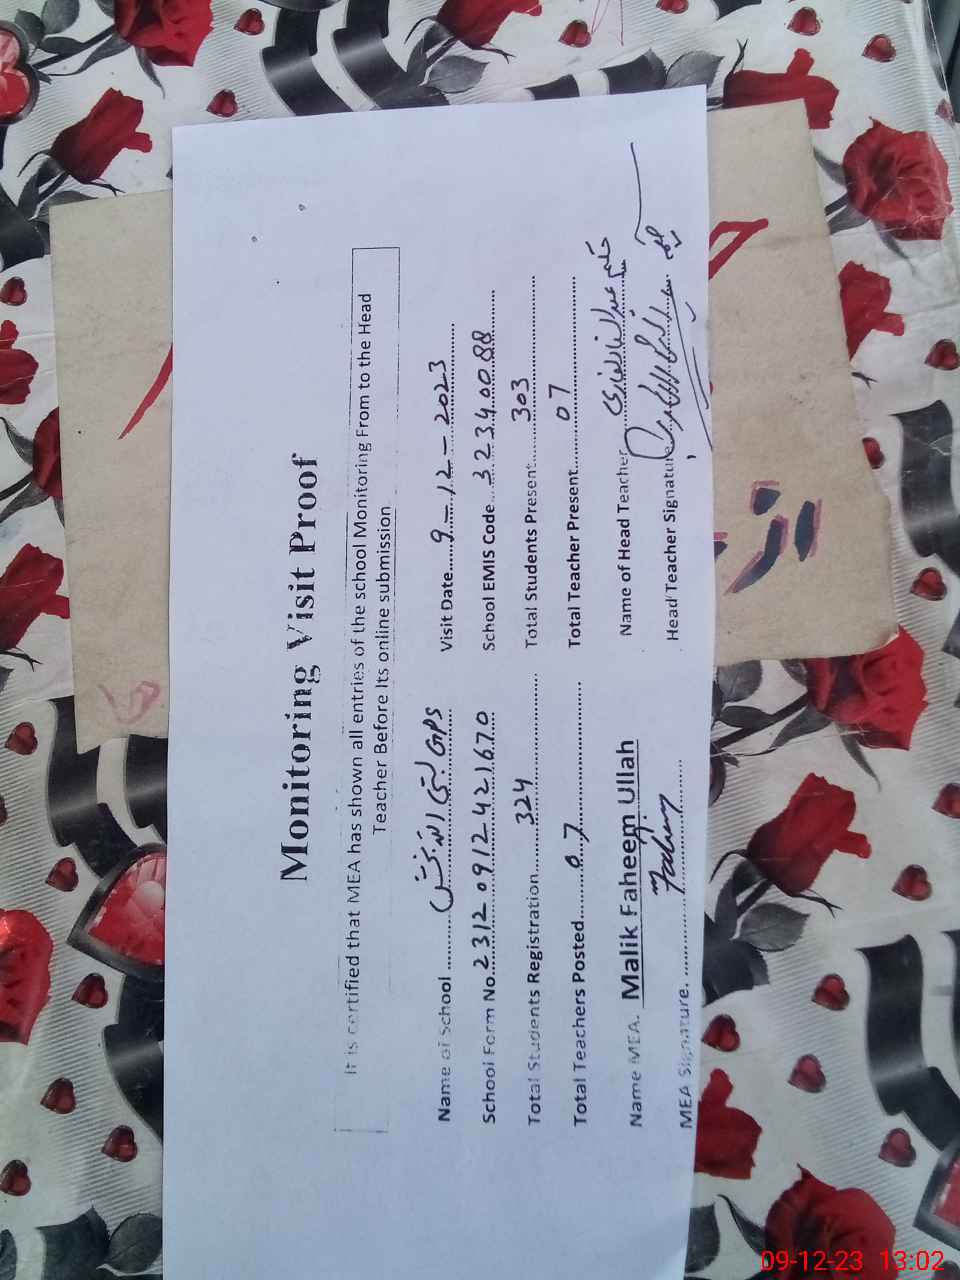 Monitoring Visit Proof
It is certified that MEA has shown all entries of the school Monitoring From to the Head
Teacher Before Its online submission
Name of School ........ GPS بستی اللہ بخش ........ Visit Date ..... 9-12-2023
School Form No. 2312 0912421670 School EMIS Code ... 32340088
Total Students Registration ........ 324 ........ Total Students Present ........ 303
Total Teachers Posted ........ 07 ........ Total Teacher Present ........ 07
Name MEA. Malik Faheem Ullah Name of Head Teacher
MEA Signature. ........ Faheem ........ Head Teacher Signature
09-12-23 13:02